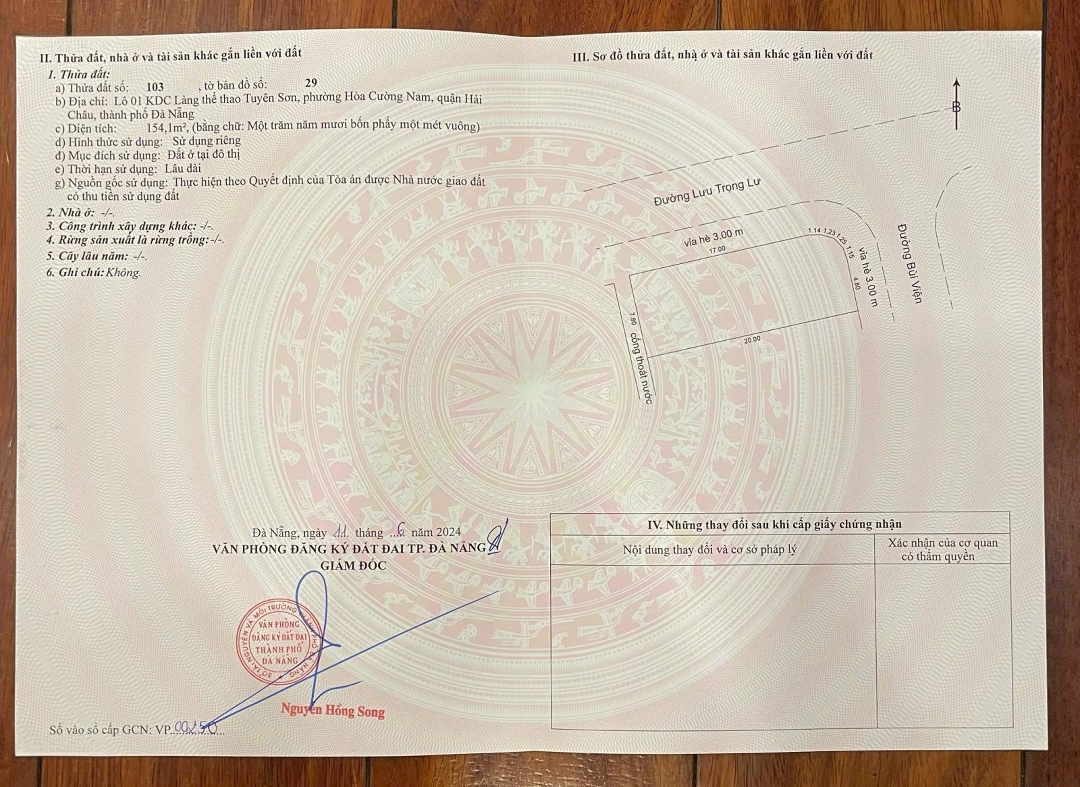 II. Thửa đất, nhà ở và tài sản khác gắn liền với đất
1. Thửa đất:
a) Thửa đất số: 103 , tờ bản đồ số: 29
b) Địa chỉ: Lô 01 KDC Làng thể thao Tuyên Sơn, phường Hòa Cường Nam, quận Hải
Châu, thành phố Đà Nẵng
c) Diện tích: 154,1m², (bằng chữ: Một trăm năm mươi bốn phẩy một mét vuông)
d) Hình thức sử dụng: Sử dụng riêng
đ) Mục đích sử dụng: Đất ở tại đô thị
e) Thời hạn sử dụng: Lâu dài
g) Nguồn gốc sử dụng: Thực hiện theo Quyết định của Tòa án được Nhà nước giao đất
có thu tiền sử dụng đất
2. Nhà ở: -/-.
3. Công trình xây dựng khác: -/-.
4. Rừng sản xuất là rừng trồng:-/-.
5. Cây lâu năm: -/-.
6. Ghi chú: Không.
Đà Nẵng, ngày 11 tháng 6 năm 2024
VĂN PHÒNG ĐĂNG KÝ ĐẤT ĐAI TP. ĐÀ NẴNG
GIÁM ĐỐC
SỞ TÀI NGUYÊN VÀ MÔI TRƯỜNG THÀNH PHỐ ĐÀ NẴNG
VĂN PHÒNG
ĐĂNG KÝ ĐẤT ĐAI
THÀNH PHỐ
ĐÀ NẴNG
Nguyễn Hồng Song
Số vào sổ cấp GCN: VP 00250
III. Sơ đồ thửa đất, nhà ở và tài sản khác gắn liền với đất
B
Đường Lưu Trọng Lư
vỉa hè 3.00 m
17.00
1.14 1.23 1.25 1.15
4.80
vỉa hè 3.00 m
Đường Bùi Viện
7.80
cống thoát nước
20.00
IV. Những thay đổi sau khi cấp giấy chứng nhận
Nội dung thay đổi và cơ sở pháp lý
Xác nhận của cơ quan
có thẩm quyền